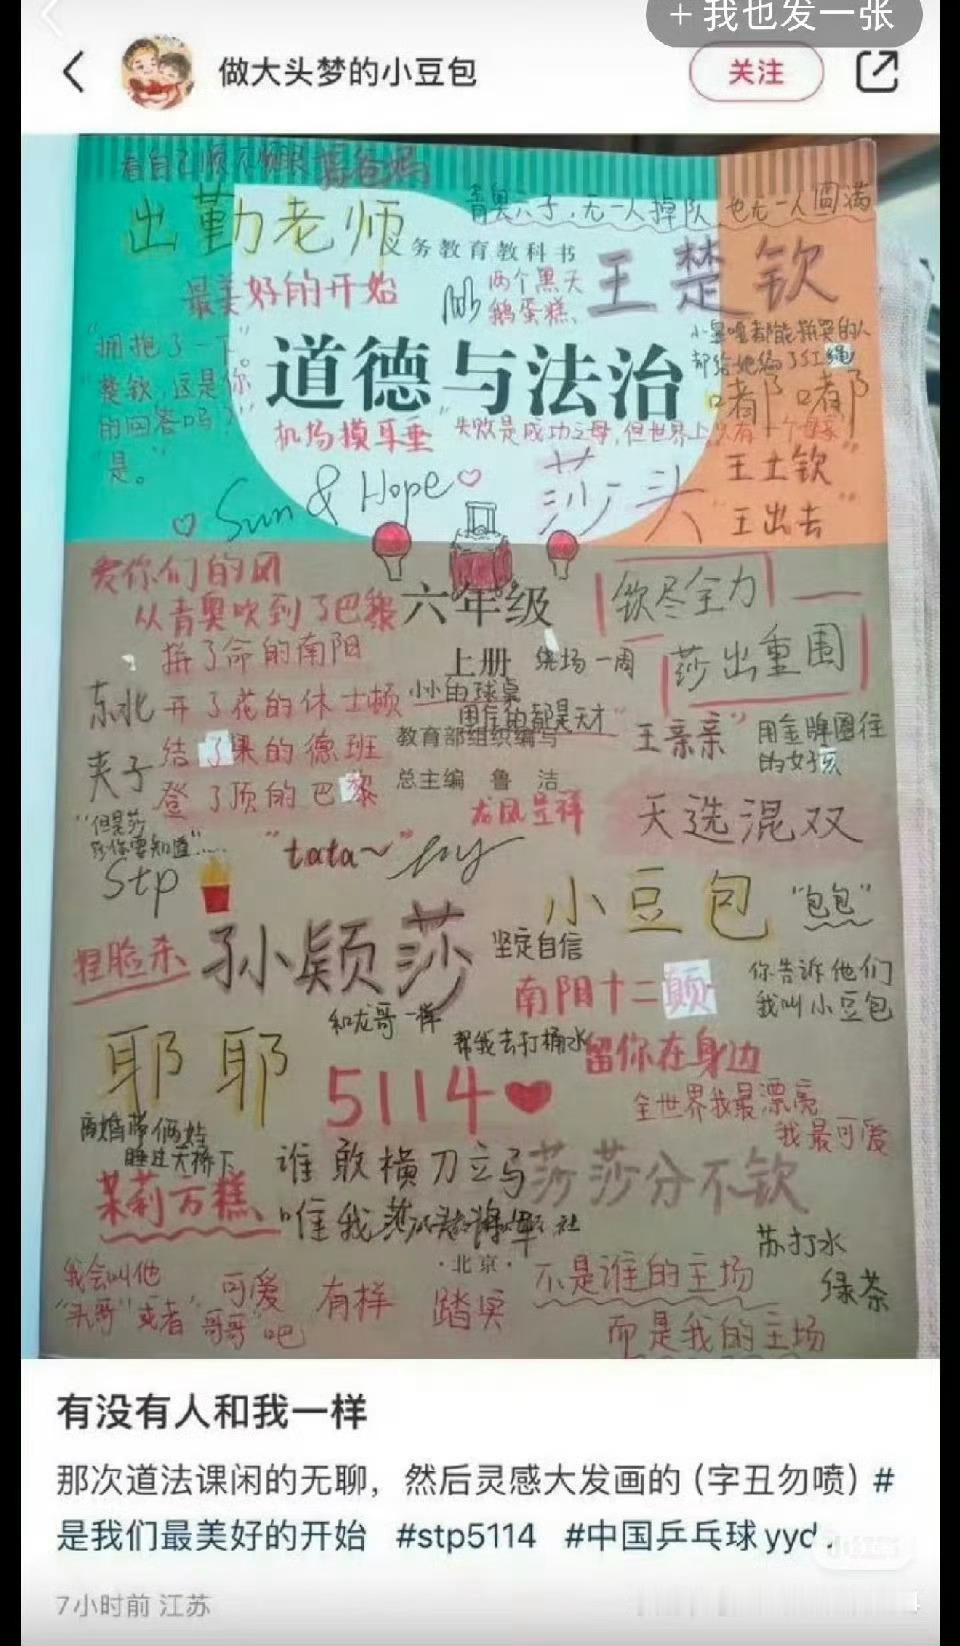 + 我也发一张
做大头梦的小豆包
关注
出勤老师
青奥六子,无一人掉队,也无一人圆满
义务教育教科书
最美好的开始
两个黑天
鹅蛋糕、
王楚钦
"拥抱了一下。
楚钦,这是你
的回答吗?"
"是。"
道德与法治
都给她编了红绳
嘟嘟
机场摸耳垂
"失败是成功之母,但世界上只有一个
王土钦"
"王出去"
Sun & Hope
莎头
爱你们的风
从青奥吹到了巴黎
六年级
上册
绕场一周
钦尽全力
莎出重围
拼了命的南阳
东北
开了花的休士顿
小小的球桌
困住的都是天才"
结了果的德班
教育部组织编写
"王亲亲"
用金牌圈住
的女孩
夹子
登了顶的巴黎
总主编 鲁洁
龙凤呈祥
天选混双
"但是莎
莎你要知道"……
"tata~"
stp
小豆包
"包包"
捏脸杀
孙颖莎
坚定自信
南阳十二颠
你告诉他们
我叫小豆包
和龙哥一样
耶耶
帮我去打桶水
留你在身边
5114
全世界我最漂亮
我最可爱
离婚带俩娃
睡过天桥下
谁敢横刀立马
莎莎分不钦
茉莉方糕
唯我莎
社
·北京·
苏打水
绿茶
我会叫他
"头哥"或者"哥哥"吧
可爱
有样
踏实
不是谁的主场
而是我的主场
有没有人和我一样
那次道法课闲的无聊，然后灵感大发画的（字丑勿喷）#
是我们最美好的开始 #stp5114 #中国乒乓球yyd
小红书
7小时前 江苏